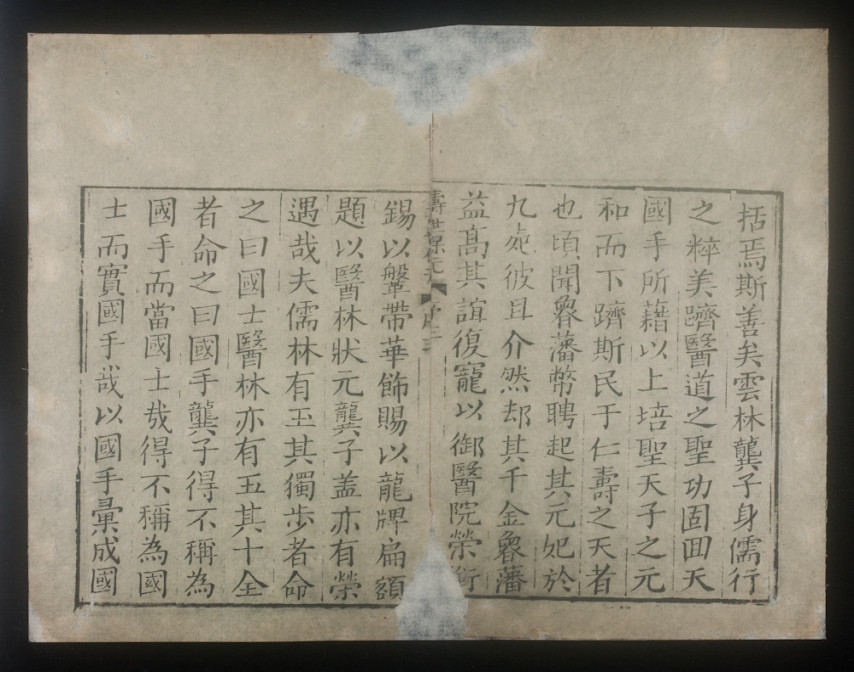 括焉斯善矣雲林龔子身儒行
之粹美躋醫道之聖功固囬天
國手所藉以上培聖天子之元
和而下躋斯民于仁壽之天者
也頃聞魯藩幣聘起其元妃於
九死彼且介然却其千金魯藩
益髙其誼復寵以御醫院榮銜
壽世保元 序 三
錫以鞶帶華飾賜以龍牌扁額
題以醫林狀元龔子盖亦有榮
遇哉夫儒林有玉其獨步者命
之曰國士醫林亦有玉其十全
者命之曰國手龔子得不稱為
國手而當國士哉得不稱為國
士而實國手哉以國手彙成國